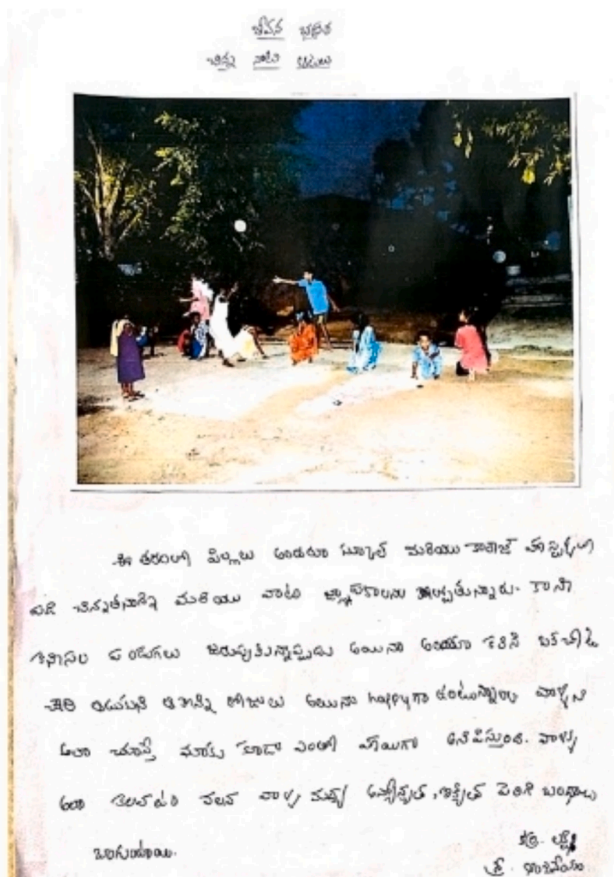 జీవన భద్రత
చిన్న నాటి కథలు
ఈ తరంలో పిల్లలు అందరూ స్కూల్ మరియు కాలేజ్ హాస్టల్స్‌లో
పడి చిన్నతనాన్ని మరియు వాటి జ్ఞాపకాలను కోల్పోతున్నారు. కానీ
కనీసం పండుగలు జరుపుకున్నప్పుడు అయినా అందరూ కలిసి
అయినా happyగా ఉంటున్నారు వాళ్ళని
అలా చూస్తే మాకు కూడా ఎంతో హాయిగా అనిపిస్తుంది. వాళ్ళు
అలా కలవడం వలన వాళ్ళ మధ్య అన్యోన్యత, ఐక్యత పెరిగి బంధాలు
బాగుంటాయి.